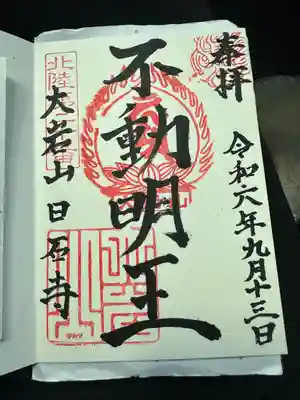 奉拝
令和六年九月十三日
不動明王
大岩山日石寺